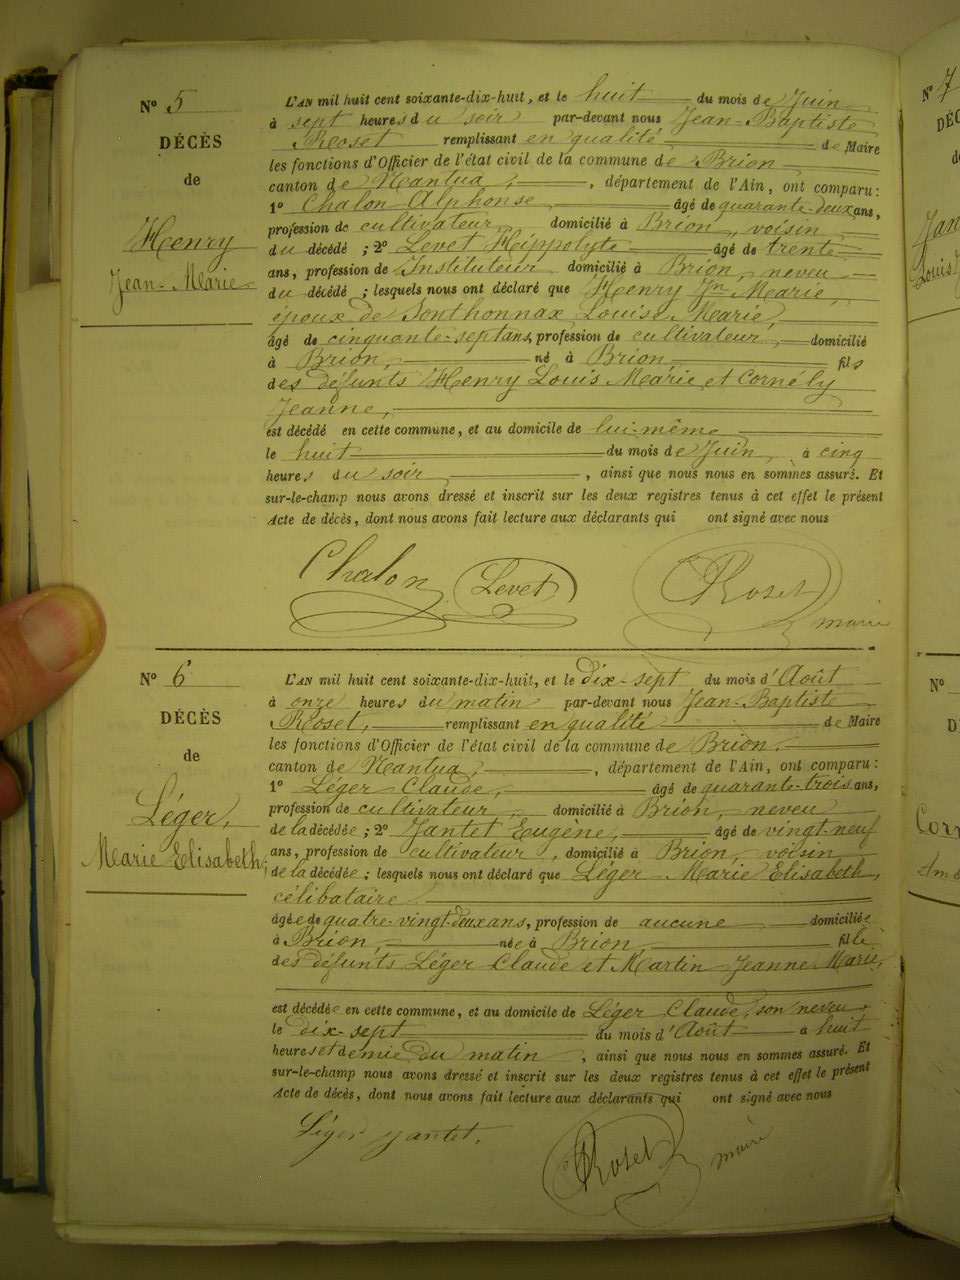 N° 5
DÉCÈS
de
Henry
Jean-Marie
L'AN mil huit cent soixante-dix-huit, et le huit du mois de Juin
à sept heures du soir par-devant nous Jean-Baptiste
Roset remplissant en qualité de Maire
les fonctions d'Officier de l'état civil de la commune de Brion
canton de Nantua, , département de l'Ain, ont comparu :
1° Chalon Alphonse âgé de quarante-deux ans,
profession de cultivateur, domicilié à Brion, voisin
du décédé ; 2° Levet Hippolyte âgé de trente
ans, profession de Instituteur domicilié à Brion, neveu
du décédé ; lesquels nous ont déclaré que Henry Jn Marie,
époux de Sonthonnax Louise Marie,
âgé de cinquante-sept ans, profession de cultivateur, domicilié
à Brion, né à Brion fils
des défunts Henry Louis Marie et Cornély
Jeanne,
est décédé en cette commune, et au domicile de lui-même
le huit du mois de Juin à cinq
heures du soir , ainsi que nous nous en sommes assuré. Et
sur-le-champ nous avons dressé et inscrit sur les deux registres tenus à cet effet le présent
Acte de décès, dont nous avons fait lecture aux déclarants qui ont signé avec nous
Chalon Levet Roset
maire
N° 6
DÉCÈS
de
Léger,
Marie Elisabeth,
L'AN mil huit cent soixante-dix-huit, et le dix-sept du mois d'Août
à onze heures du matin par-devant nous Jean-Baptiste
Roset, remplissant en qualité de Maire
les fonctions d'Officier de l'état civil de la commune de Brion,
canton de Nantua, , département de l'Ain, ont comparu :
1° Léger Claude, âgé de quarante-trois ans,
profession de cultivateur, domicilié à Brion, neveu
de la décédée ; 2° Jantet Eugène, âgé de vingt-neuf
ans, profession de cultivateur, domicilié à Brion, voisin
de la décédée ; lesquels nous ont déclaré que Léger Marie Elisabeth,
célibataire
âgée de quatre-vingt-deux ans, profession de aucune domiciliée
à Brion, née à Brion, fille
des défunts Léger Claude et Martin Jeanne Marie,
est décédée en cette commune, et au domicile de Léger Claude, son neveu
le dix-sept du mois d'Août à huit
heures et demie du matin , ainsi que nous nous en sommes assuré. Et
sur-le-champ nous avons dressé et inscrit sur les deux registres tenus à cet effet le présent
Acte de décès, dont nous avons fait lecture aux déclarants qui ont signé avec nous
Léger jantet. Roset maire
N° 7
N°